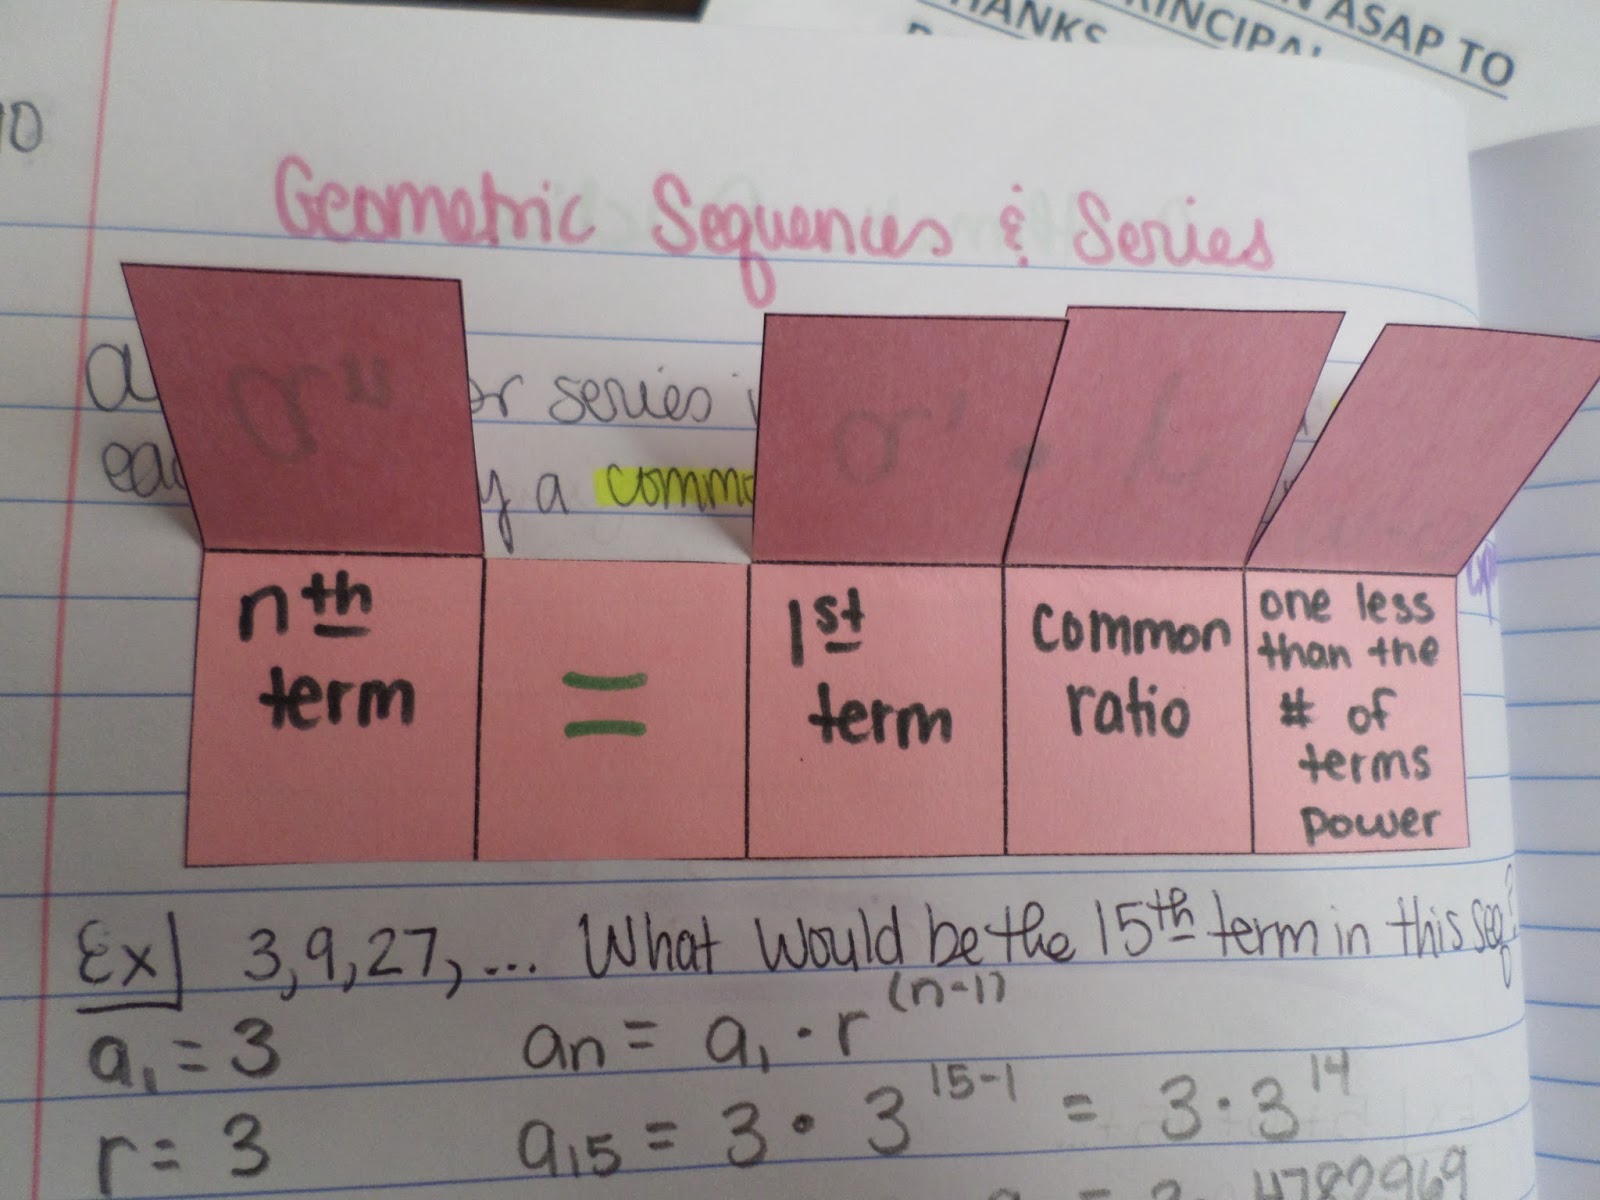 HANKS
PRINCIPAL
ASAP TO
10
Geometric Sequences & Series
a or series
a commo
nth term
=
1st term
common ratio
one less than the # of terms power
Ex] 3, 9, 27, ... What would be the 15th term in this seq?
a₁ = 3
an = a₁ · r^(n-1)
r = 3
a15 = 3 · 3^15-1 = 3 · 3^14
= 3 · 4782969